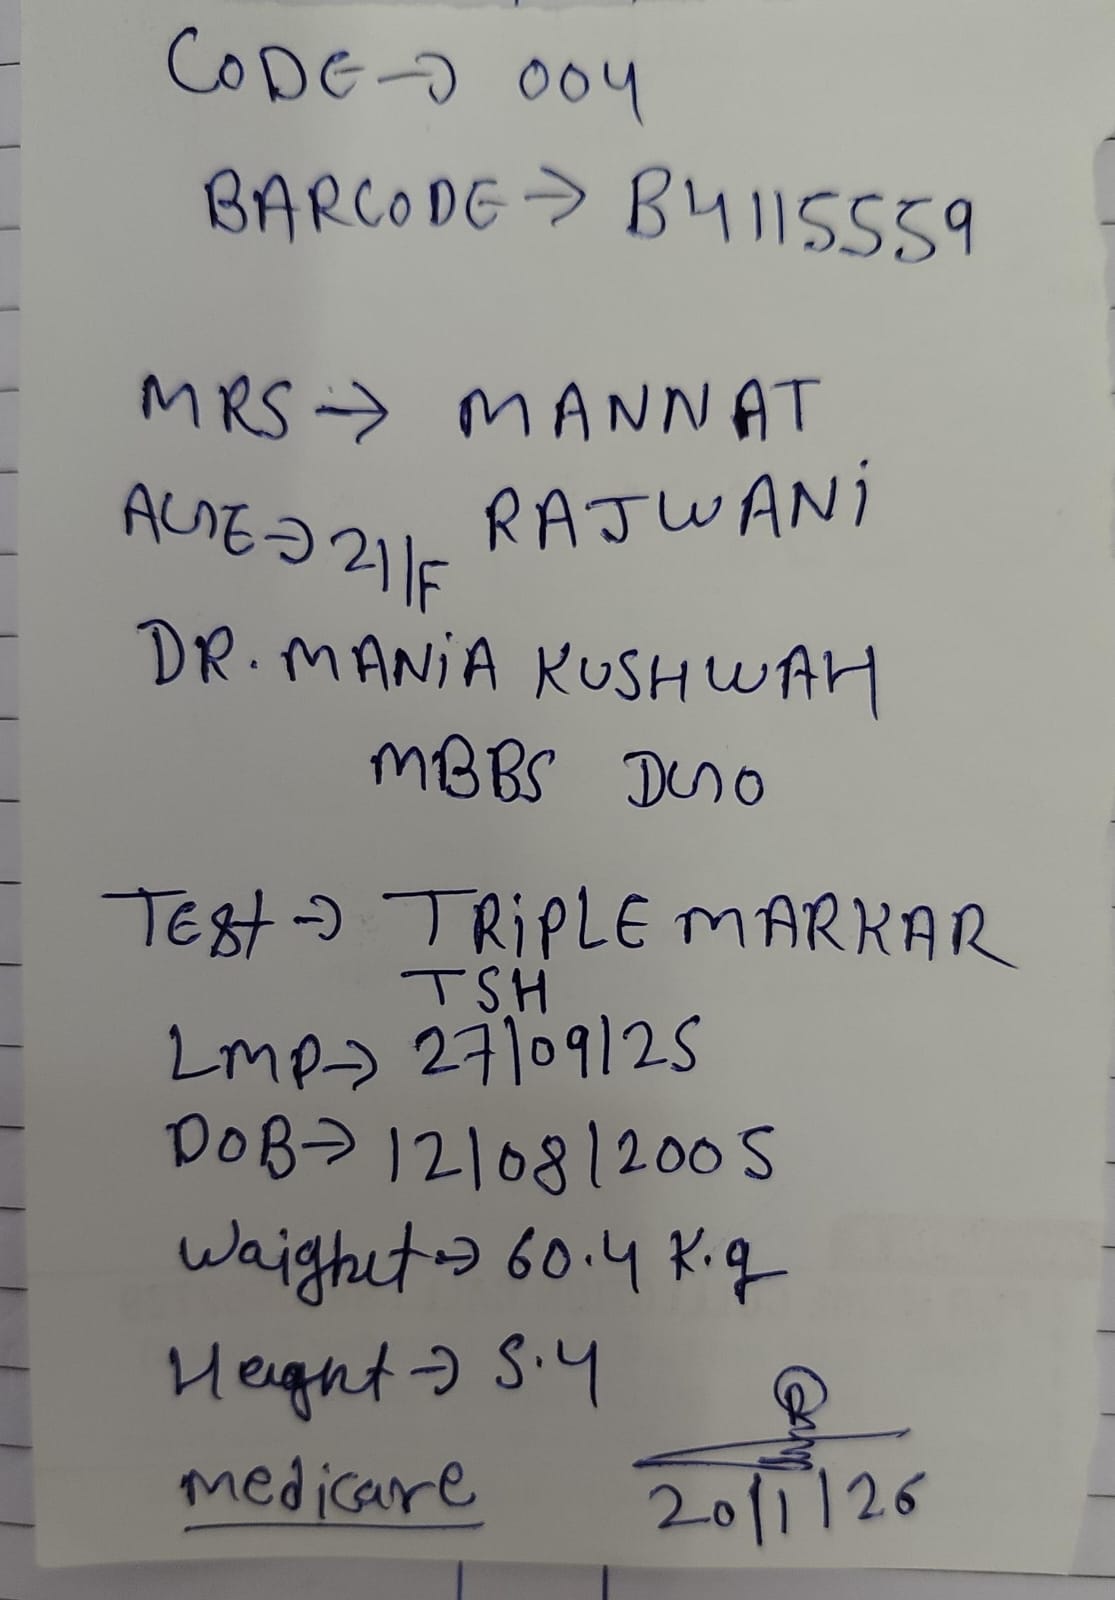 CODE → 004
BARCODE → B4115559
MRS → MANNAT
RAJWANi
AGE → 21/F
DR. MANiA KUSHWAH
MBBS DGO
TEST → TRiPLE MARKAR
TSH
LMP → 27/09/25
DOB → 12/08/2005
Waighet → 60.4 K.g
Height → 5.4
medicare
20/1/26